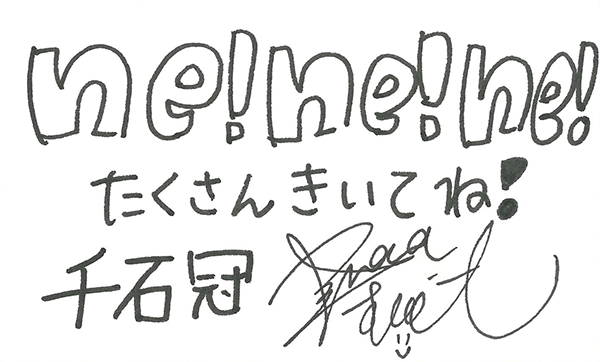 ne! ne! ne!
たくさんきいてね!
千石冠